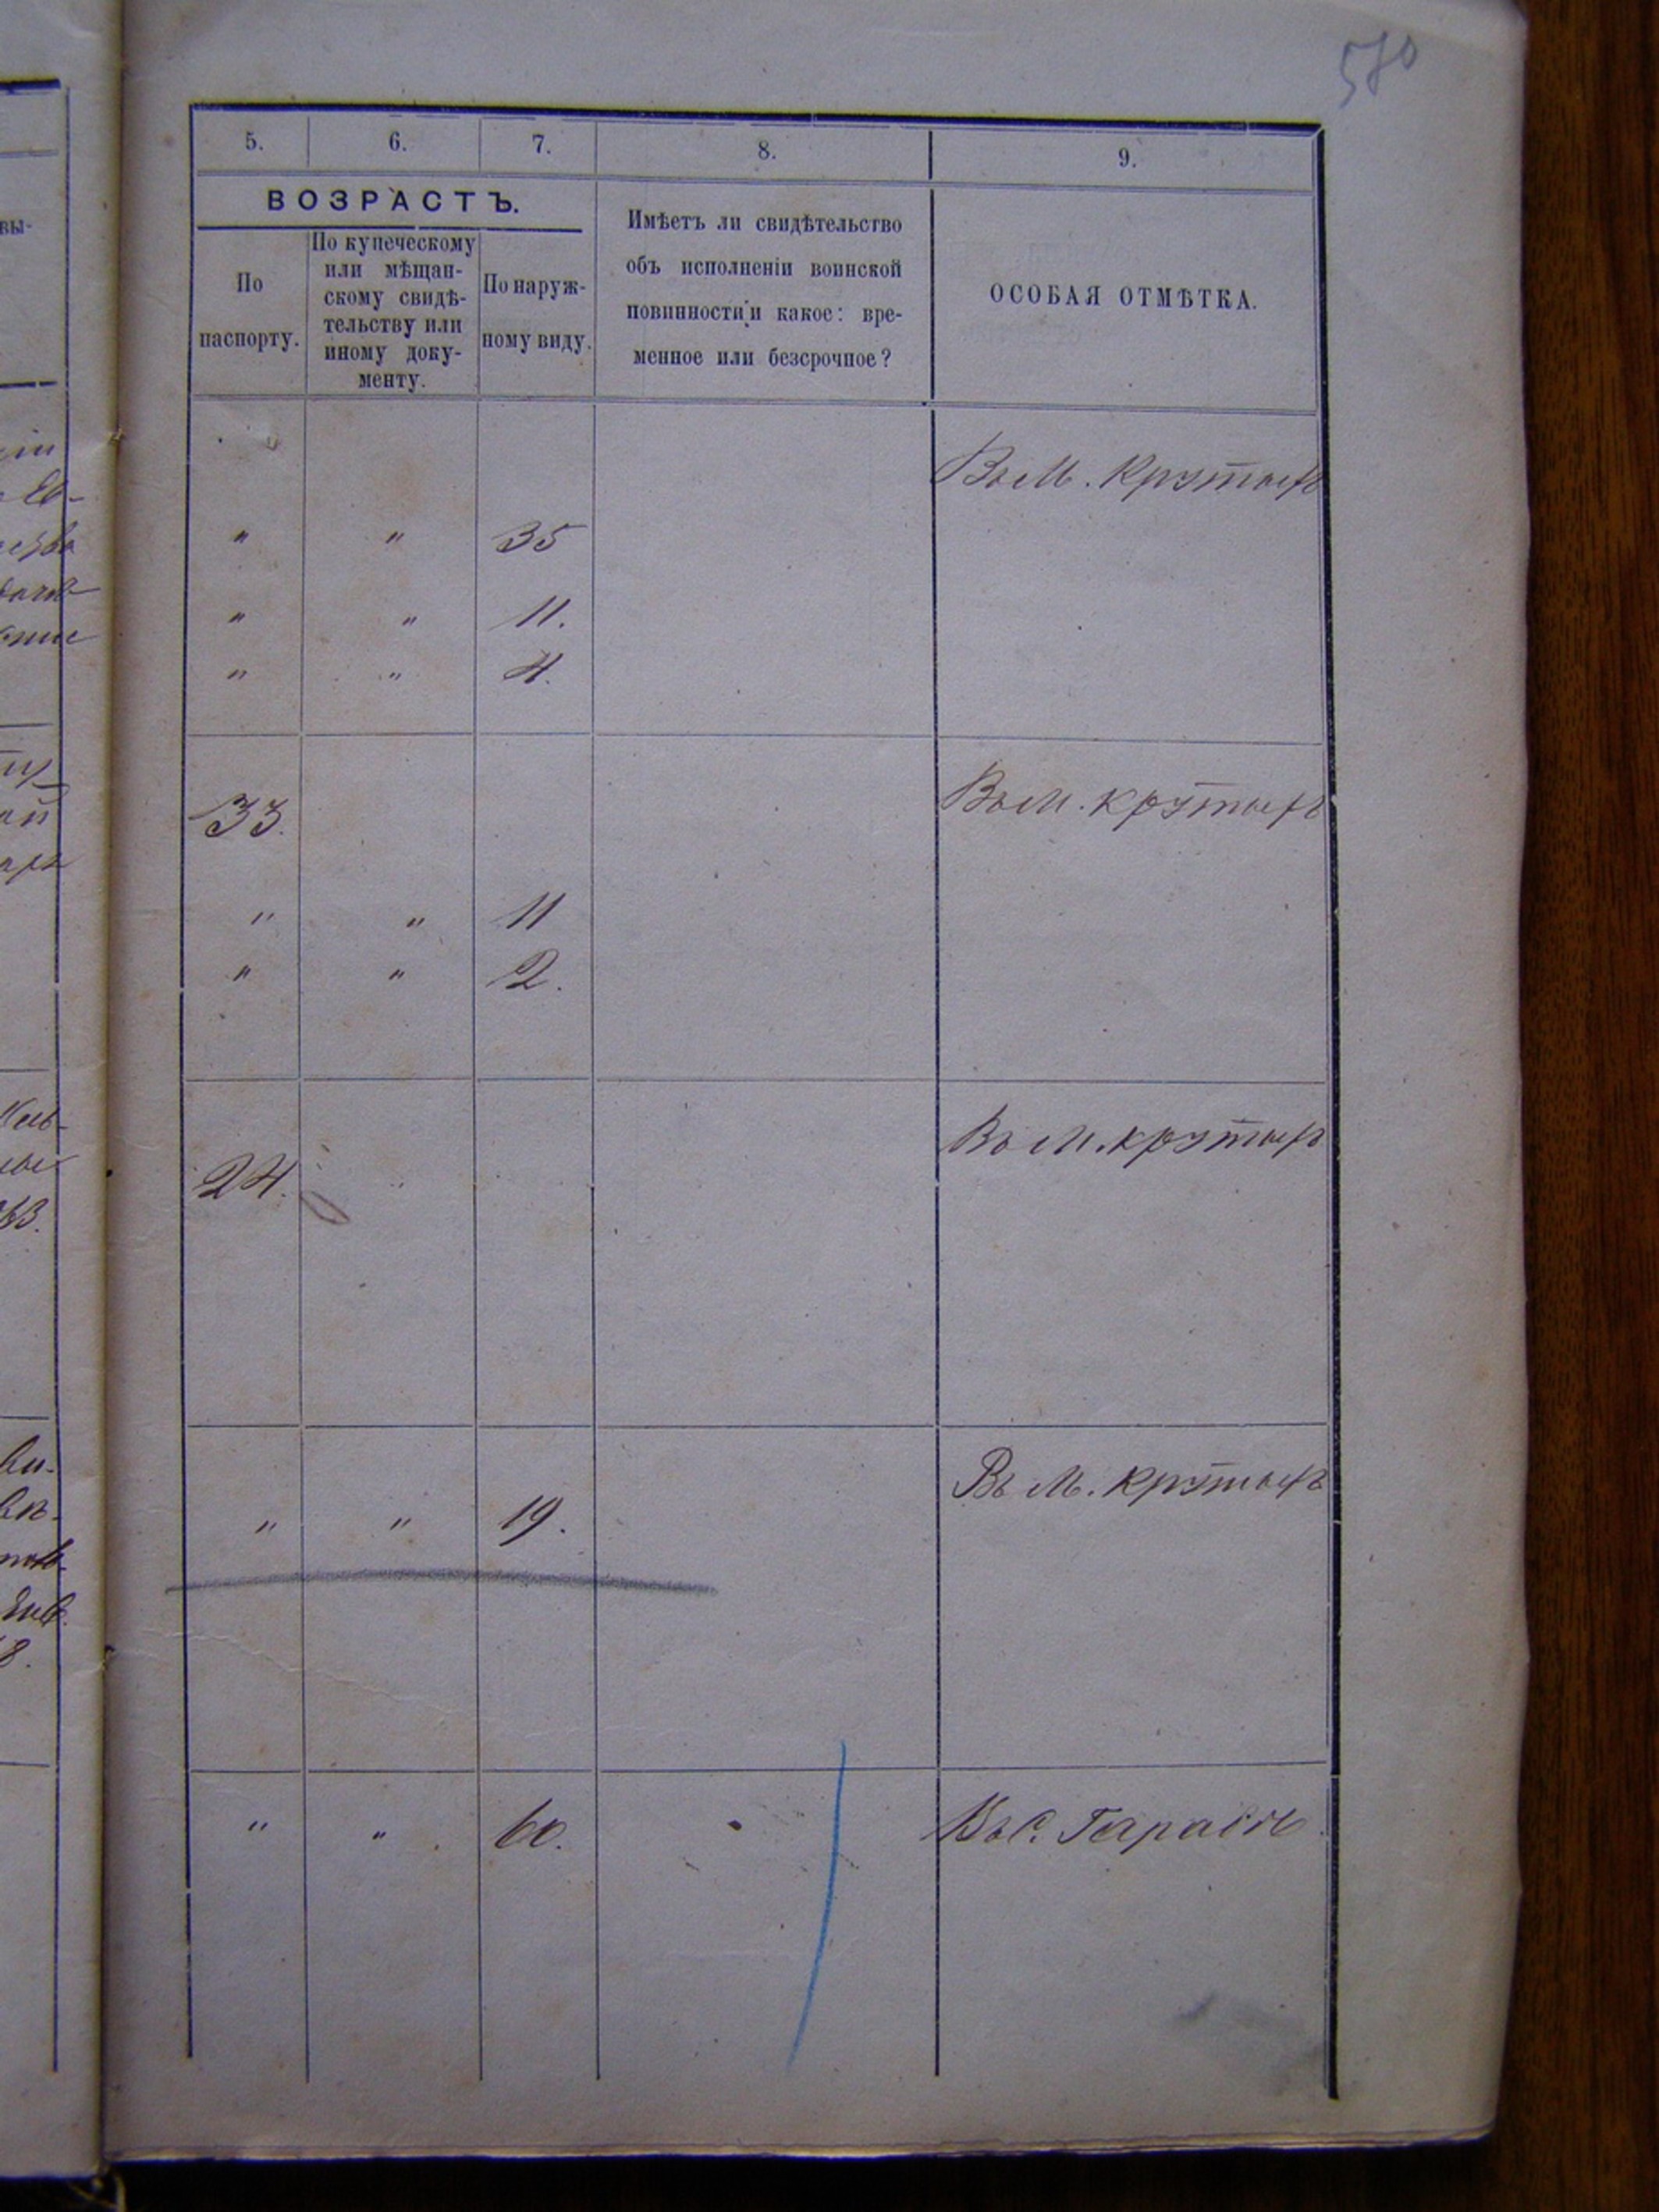 570
5. 6. 7. 8. 9.
ВОЗРАСТЪ.
По
паспорту.
По купеческому
или мѣщан-
скому свидѣ-
тельству или
иному доку-
менту.
По наруж-
ному виду.
Имѣетъ ли свидѣтельство
объ исполненіи воинской
повинности и какое: вре-
менное или безсрочное?
ОСОБАЯ ОТМѢТКА.
Въ М. Крутыхъ
" " 35
" " 11.
" " 4.
33. Въ М. Крутыхъ
" " 11
" " 2.
Въ М. Крутыхъ
24.
Въ М. Крутыхъ
" " 19.
" " 60. Въ С.